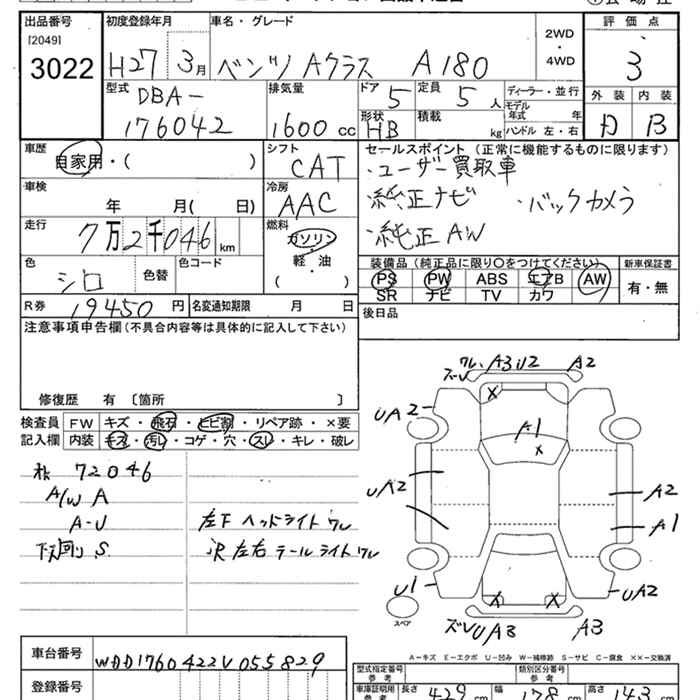 出品番号 初度登録年月 車名・グレード 評価点
[2049]
3022 H27 3月 ベンツ Aクラス A180 2WD・4WD 3
型式 排気量 ドア 定員 ディーラー・並行 外装 内装
DBA- 5 5人 モデル年式 年
176042 1600cc 形状 HB 積載 kg ハンドル 左・右 B
車歴 シフト セールスポイント (正常に機能するものに限ります)
自家用・( ) CAT ・ユーザー買取車
車検 冷房 ・純正ナビ ・バックカメラ
年 月( 日) AAC ・純正AW
走行 燃料
7万2千046km ガソリン・軽油 ( )
色 色替 色コード 装備品 (純正品に限り○をつけてください) 新車保証書
シロ PS PW ABS エアB AW 有・無
SR ナビ TV カワ
R券 19450円 名変通知期限 月 日 後日品
注意事項申告欄 (不具合内容等は具体的に記入して下さい)
修復歴 有 〔箇所 〕
検査員 FW キズ・飛石・ヒビ割・リペア跡・×要
記入欄 内装 キズ・汚レ・コゲ・穴・スレ・キレ・破レ
72046
A/W A
A-U 左下 ヘッドライト ワレ
下回り S 左右 テールライト ワレ
ワレ、A3U2 A2
ズレ
UA2 A1
UA2 A2
A1
U1 UA2
スペア
ズレUA3 A3
A-キズ E-エクボ U-凹み W-補修跡 S-サビ C-腐食 XX-交換済
車台番号 WDD1760422V055829
登録番号
型式指定番号 参考 類別区分番号 参考
車庫証明用 参考 長さ 429cm 幅 178cm 高さ 143cm